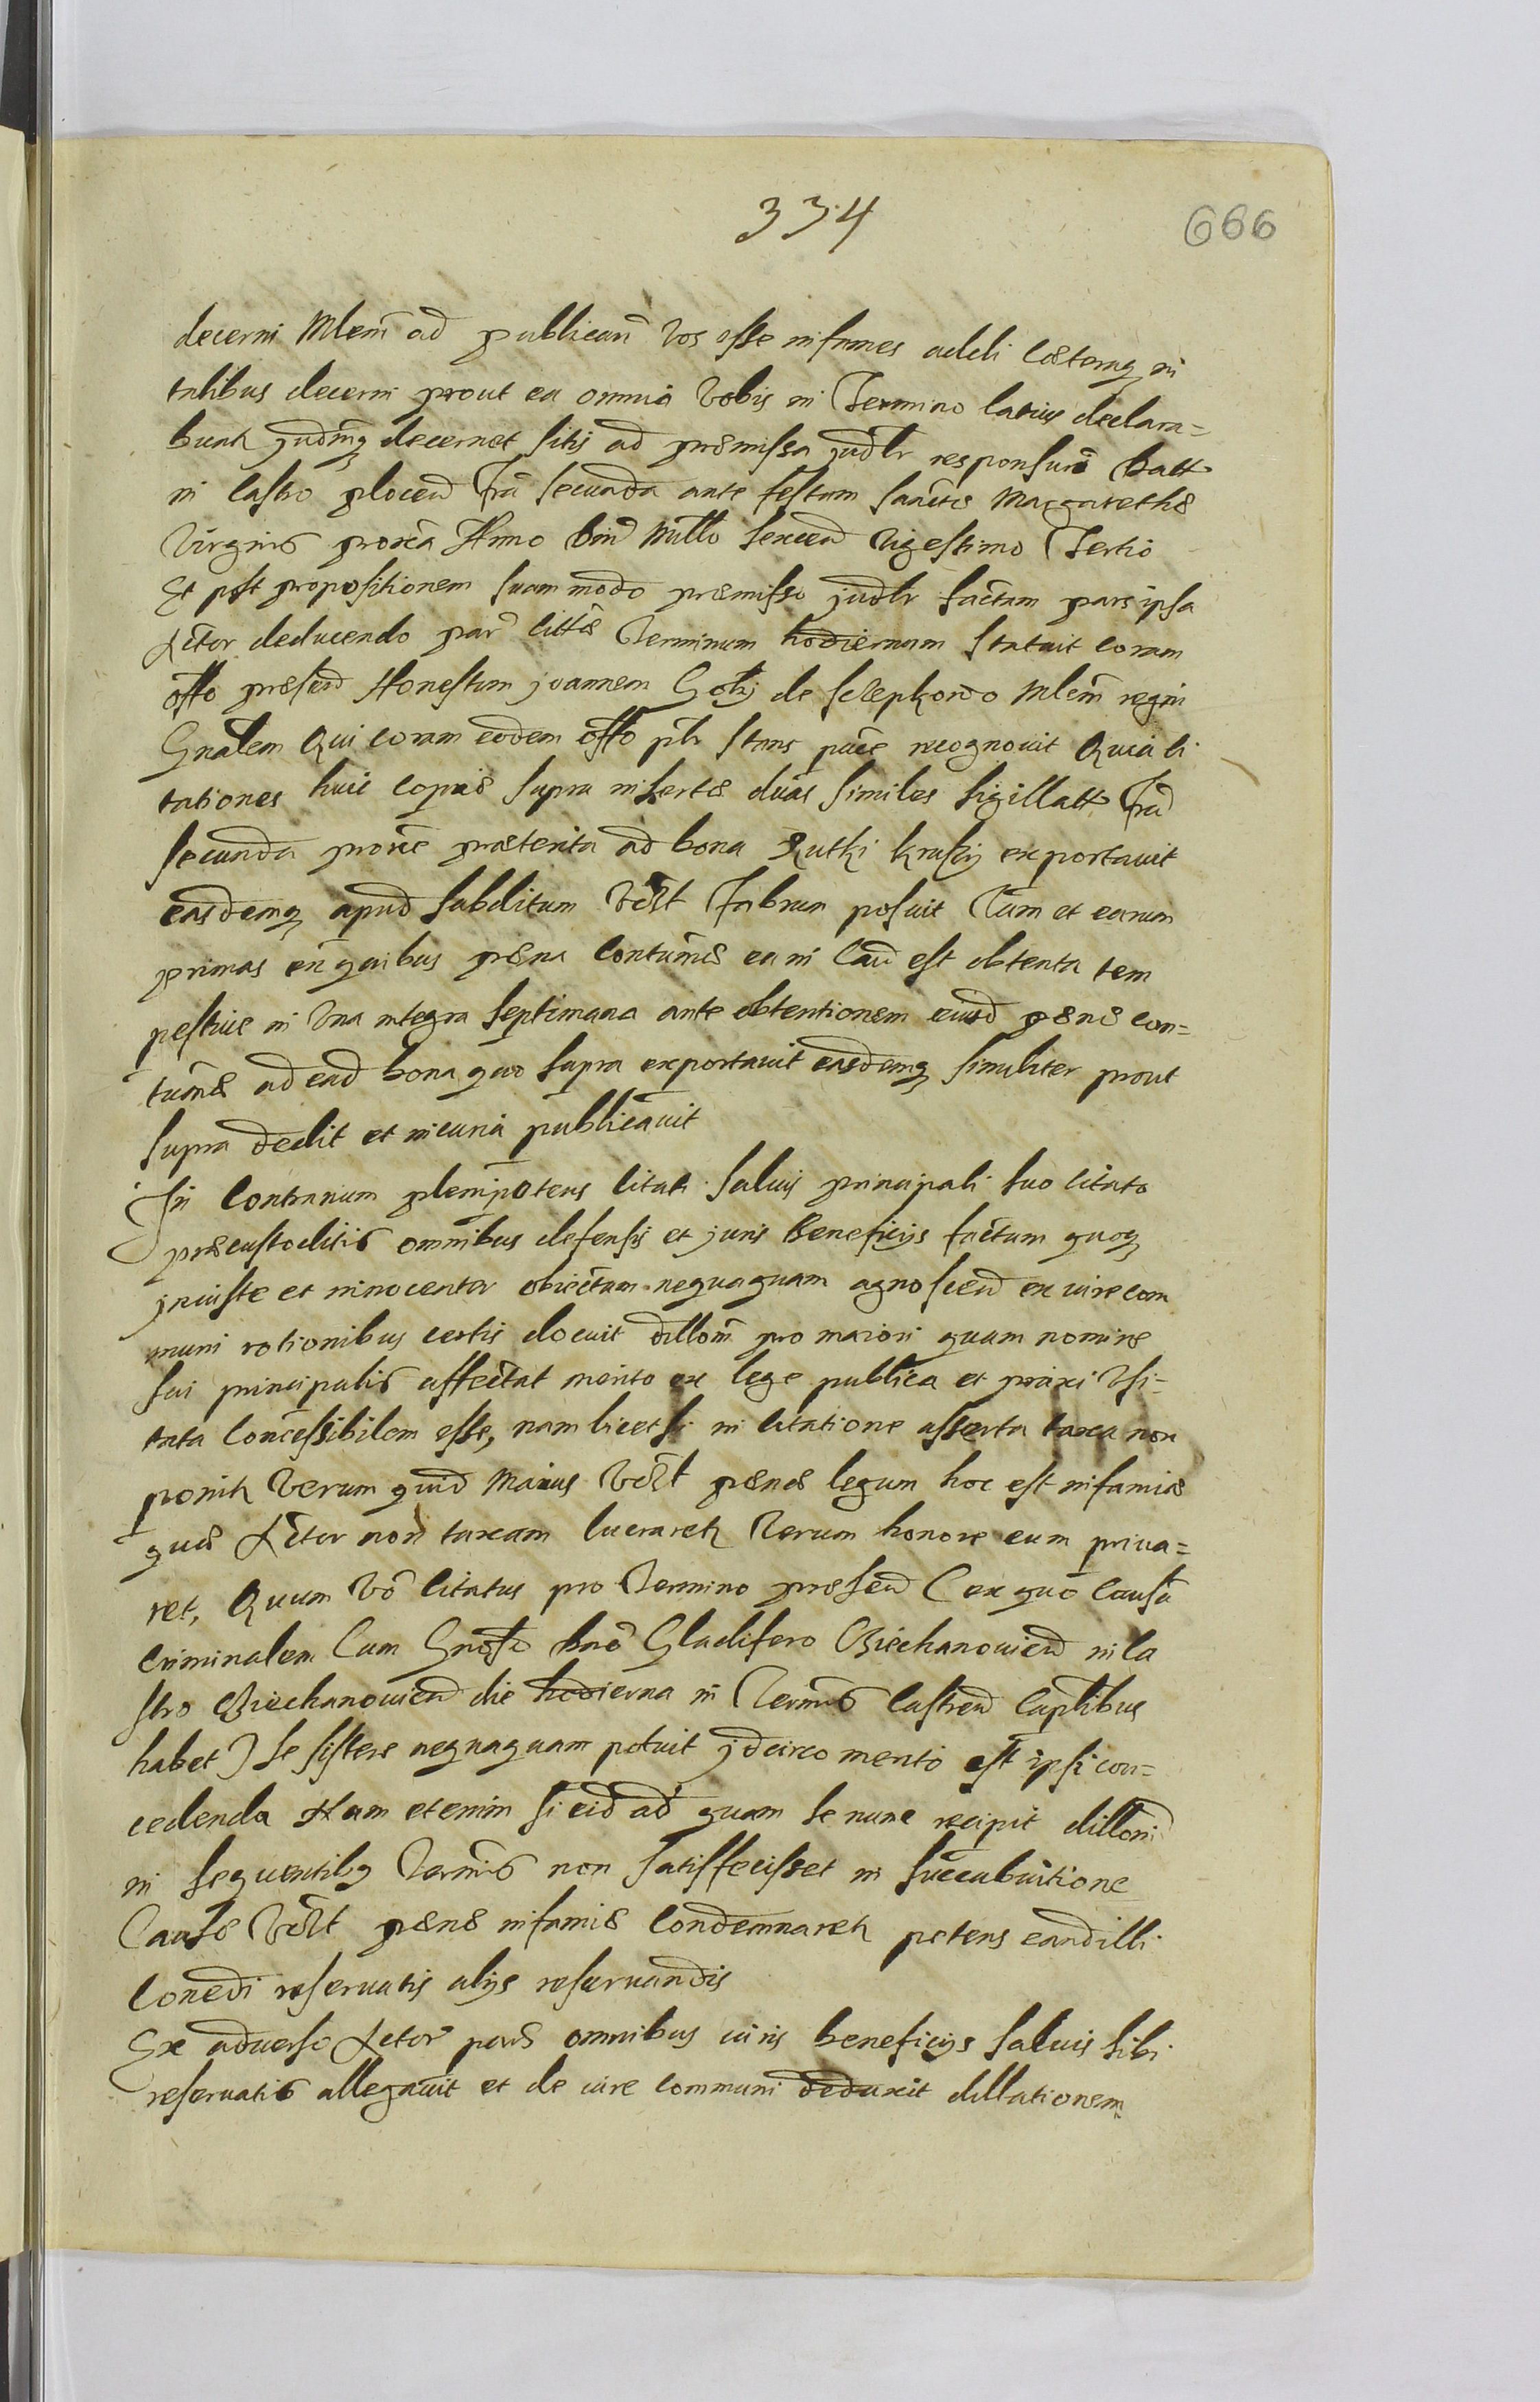 334
666
decerni Mlem ad publicand vos esse infames addi caeteraq in
talibus decerni prout ea omnia vobis in Termino latius declara=
bunt judmq decernet sitis ad praemissa judlr responsuri Datt
in Castro plocen fria secunda ante festum sanctae Margarethae
Virginis proxa Anno Dni Millo sexcen vigesimo Tertio
Et post propositionem suam modo praemisso judlr factam pars ipsa
Actor deducendo par cittae Terminum hodiernum statuit coram
offo praesen Honestum joannem de Mlem regni
Gnalem Qui coram eodem offo plr stans puce recognovit Quia ci
tationes huic copiae supra insertae duas similes sigillatt fria
secunda proxe praeterita ad bona Rutki kruki exportauit
easdemq apud subditum vest fabrum posuit Tum et earum
primas ex quibus paena contumae ea in Cau est obtenta tem
pestive in una integra septimana ante obtentionem eiusd paenae con=
tumae ad ead bona quo supra exportauit easdemq similiter prout
supra dedit et incuria publicauit
In Contrarium plenipotens citati salvis principali suo citato
praecustoditis omnibus defensis et juris Beneficijs factum quoq
iniuste et innocenter obiectum nequaquam agnoscen ex iure com
muni rationibus certis docuit dillom pro maiori quam nomine
sui principalis affectat merito ex lege publica et praxi usi=
tata Concessibilem esse, nam licet si in citatione asserta taxa non
ponitr Verum quid Maius vest paenae legum hoc est infamiae
quae Actor non taxam lucraretr Verum honore eum priua=
ret, Quum vo citatus pro Termino praesen (ex quo causa
criminalem Cum Gnoso Gladifero Ciechanouien in Ca
stro Ciechanouien die hodierna in Terminis Castren Captlibus
habet) se sistere nequaquam potuit jdcirco merito est ipsi con=
cedenda Nam etenim si eid ad quam se nunc recipit dilloni
in sequentibq Terminis non satisfecisset in succubuitione
Causae vest paenae infamiae condemnaretr petens eand illi
Concedi reseruatis alijs reseruandis
Ex aduerso Actor pars omnibus iuris beneficijs saluis sibi
reseruatis allegauit et de iure communi deduxit dillationem